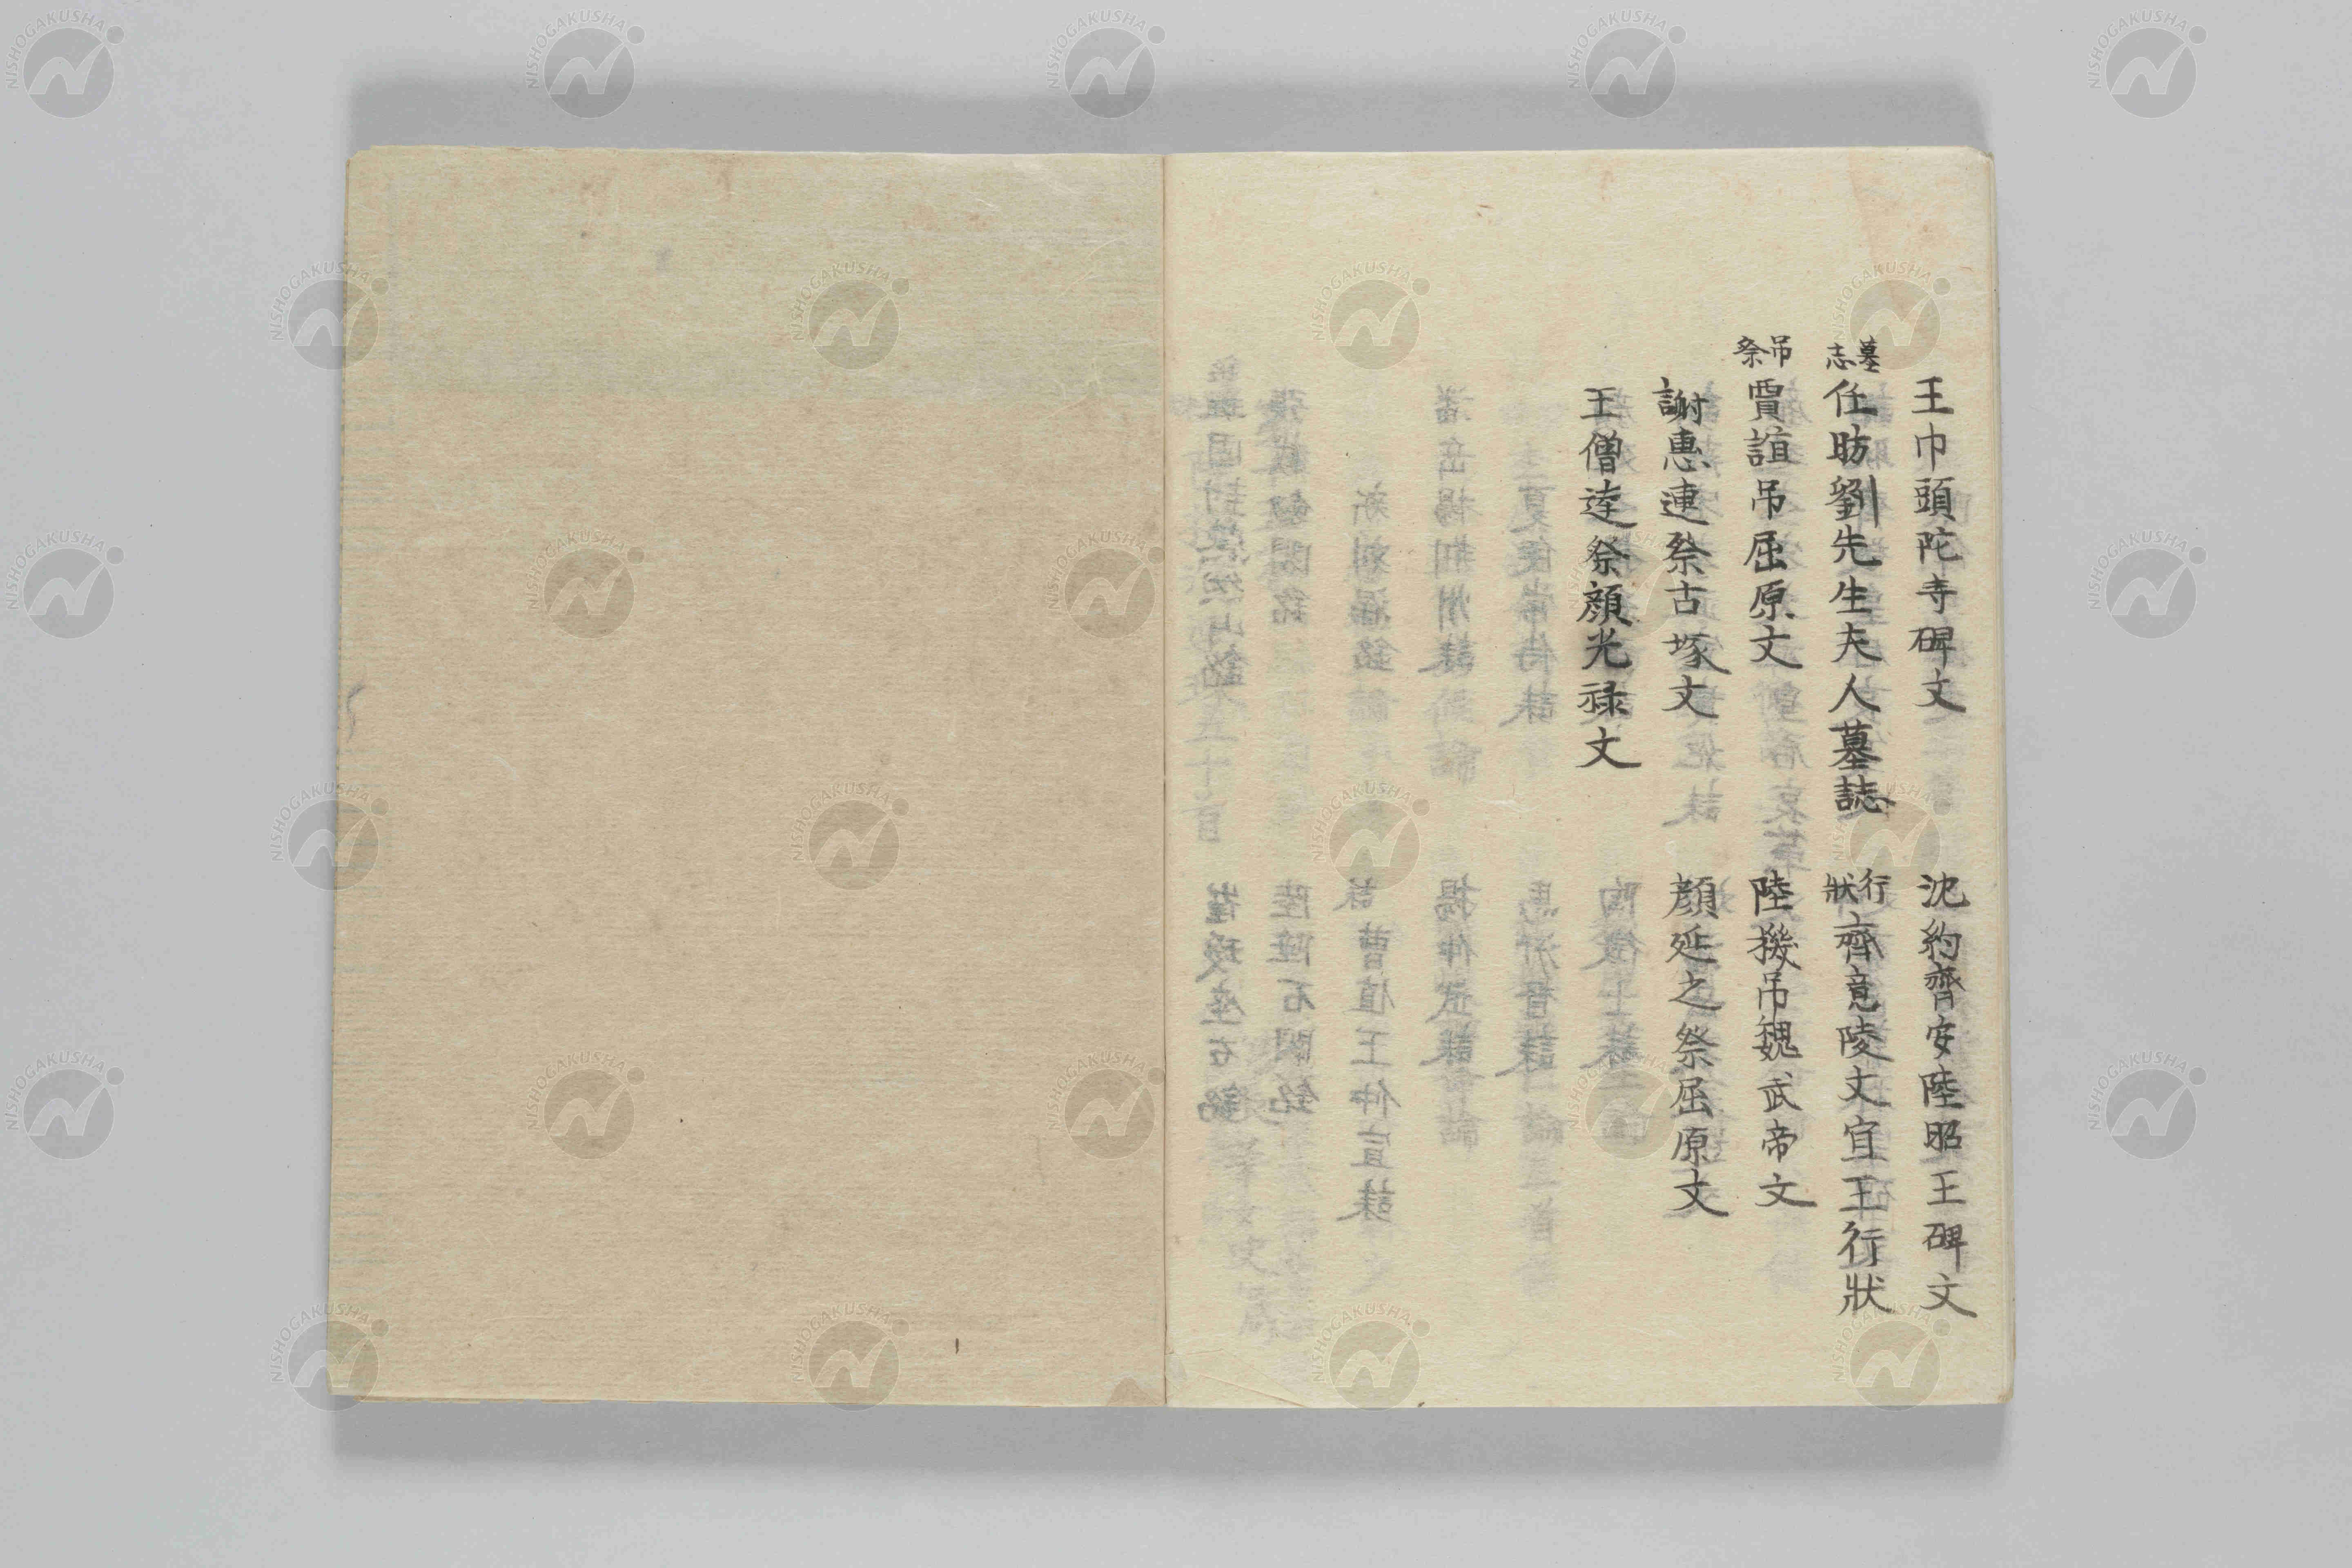 王巾頭陀寺碑文　沈約齊安陸昭王碑文
墓志 任昉劉先生夫人墓誌　行狀 齊竟陵文宣王行狀
吊祭 賈誼吊屈原文　陸機吊魏武帝文
謝惠連祭古塚文　顔延之祭屈原文
王僧達祭顔光禄文
NISHOGAKUSHA